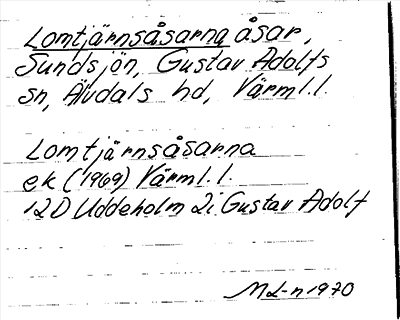 Lomtjärnsåsarna åsar,
Sundsjön, Gustav Adolfs
sn, Älvdals hd, Värml.l.
Lomtjärnsåsarna
ek (1969) Värml.l.
12D Uddeholm 2i Gustav Adolf
ML-n 1970